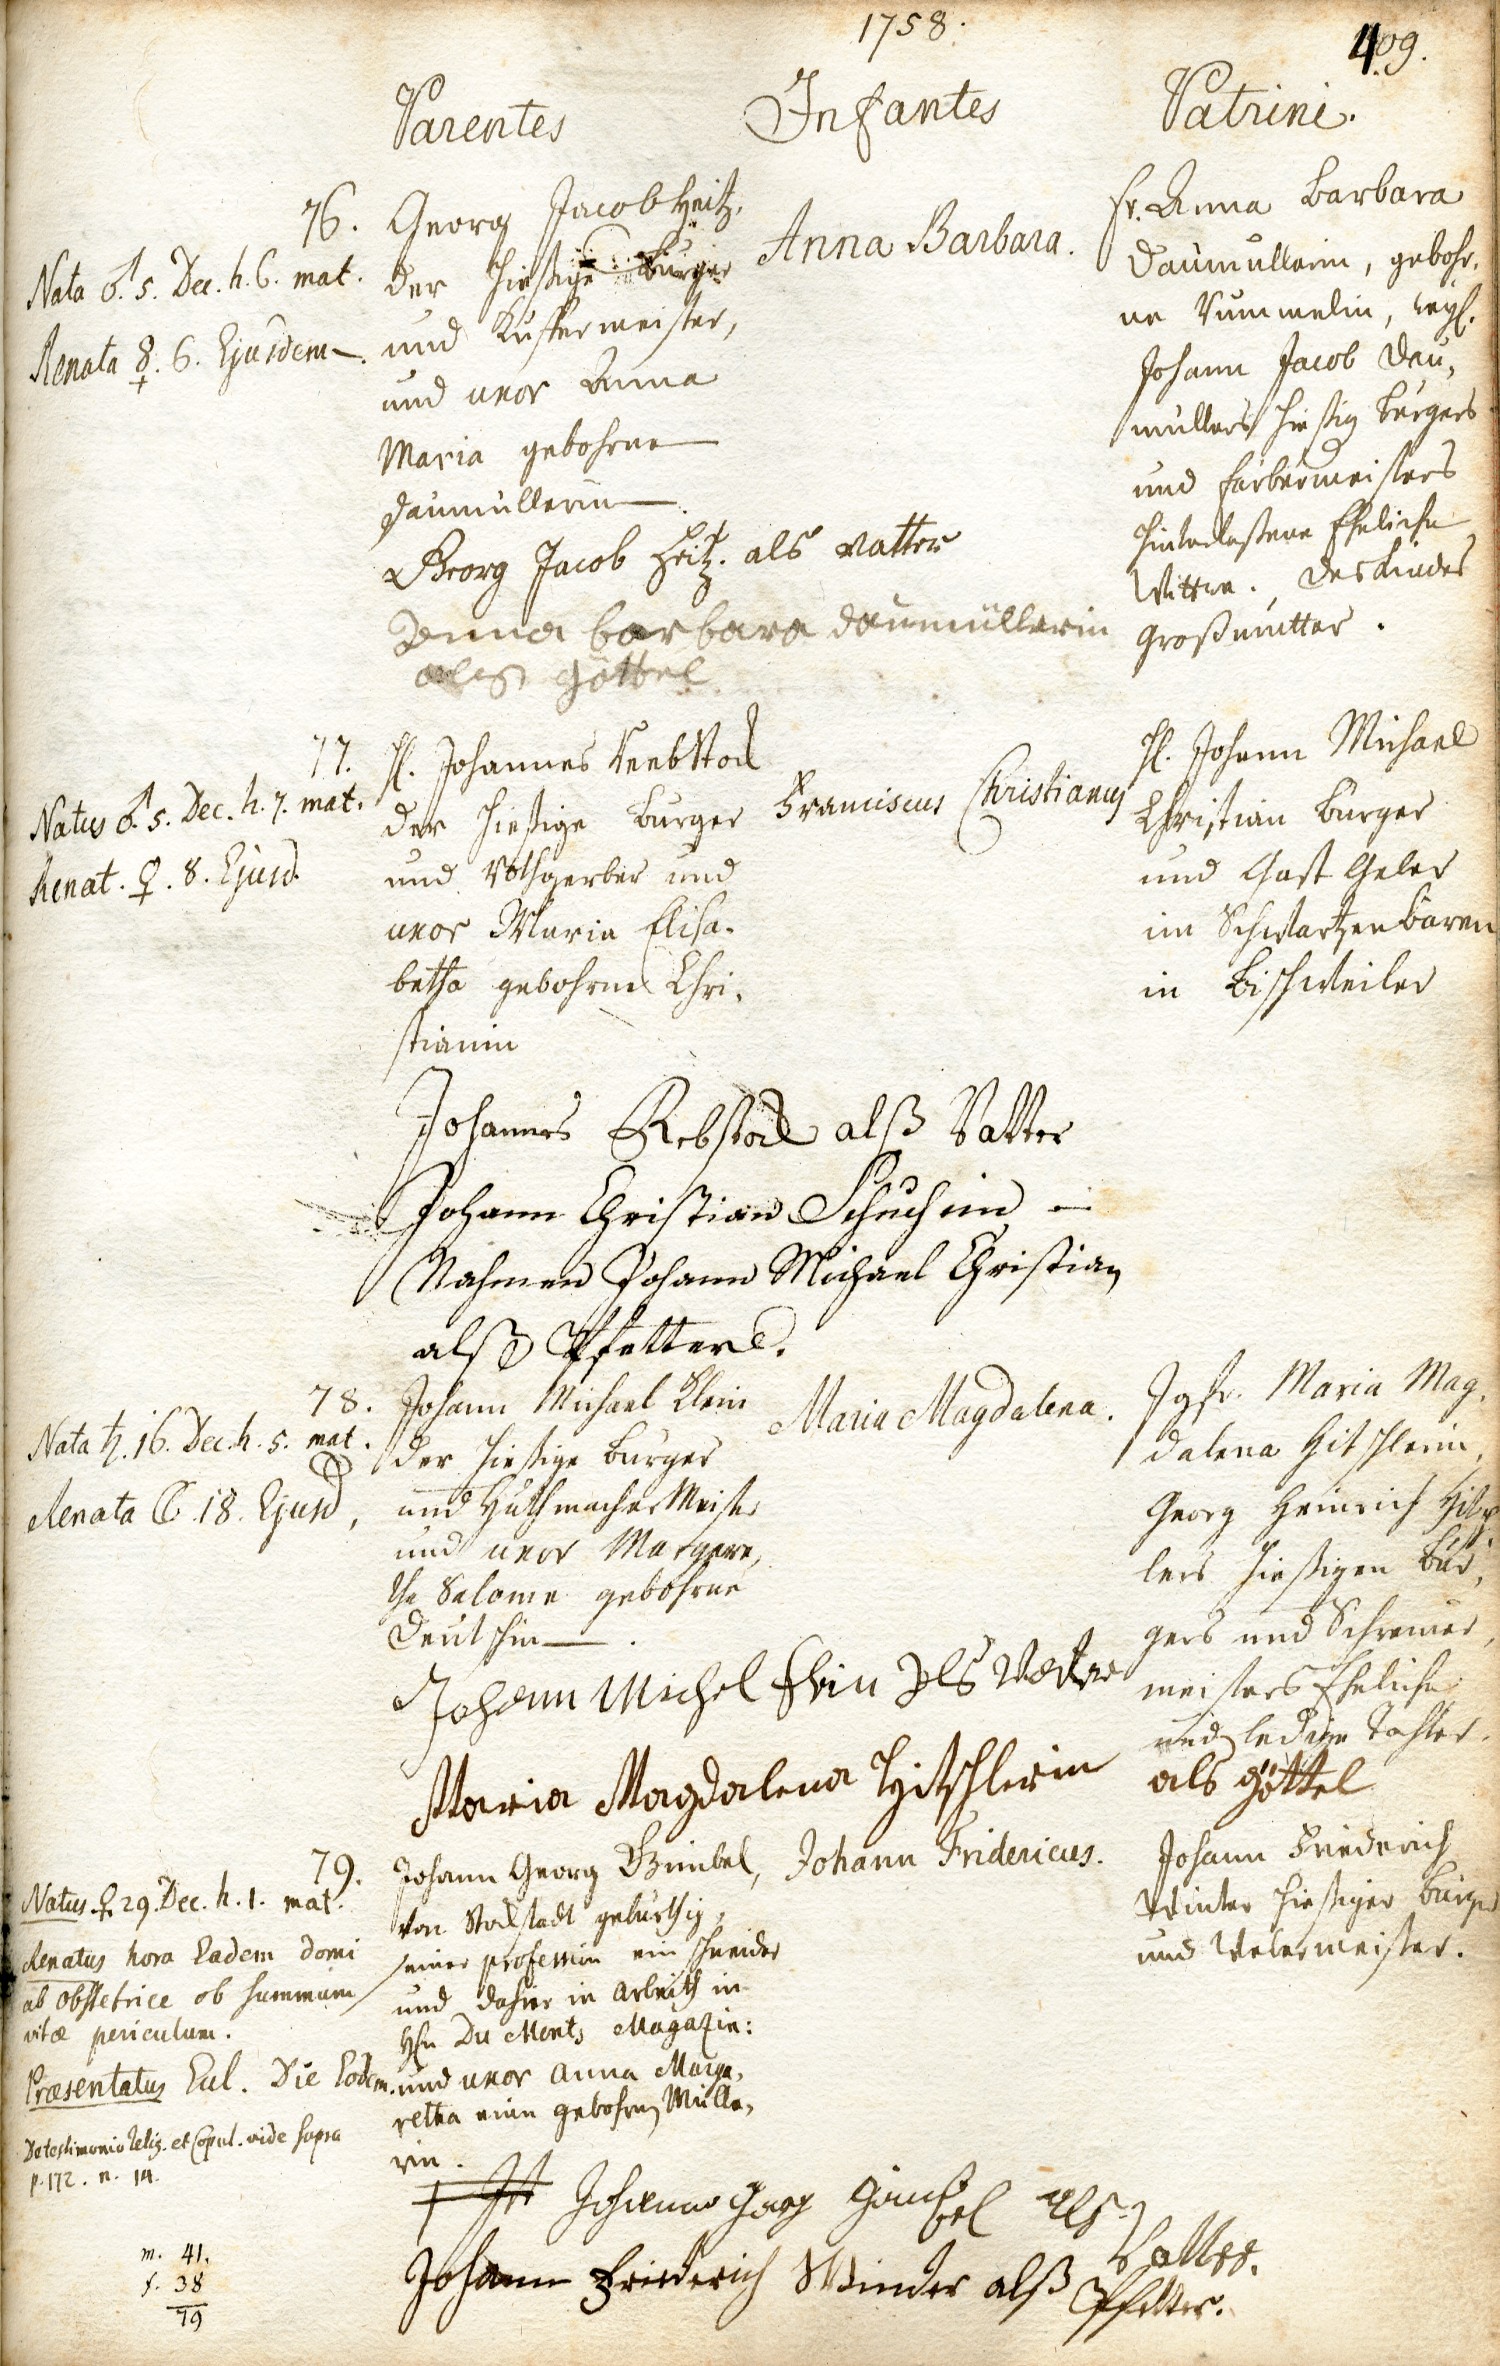 1758.
409.
Parentes Infantes Patrini.
76.
Nata ♂. 5. Dec. h. 6. mat.
Renata ☿. 6. Ejusdem
Georg Jacob Heitz,
der hießige Burger
und Kuffermeister,
und uxor Anna
Maria gebohrne
Daumüllerin
Anna Barbara.
Fr. Anna Barbara
Daumüllerin, gebohr,
ne Rummelin, weyl.
Johann Jacob Dau,
müllers hießig Burgers
und Färbermeisters
hinterlaßene Eheliche
Wittwe. Des Kindes
Großmutter.
Georg Jacob Heitz. als vatter
Anna barbara daumüllerin
als göttel
77.
Natus ♂. 5. Dec. h. 7. mat.
Renat. ♀. 8. Ejusd.
H. Johannes Reebstock
der hießige Burger
und Rothgerber und
uxor Maria Elisa,
betha gebohrne Chri,
stianin
Franciscus Christianus
H. Johann Michael
Christian Burger
und Gast Geber
im Schwartzen Baeren
in Bischweiler
Johannes Rebstock alß Vatter
Johann Christian Schuch im
Nahmen Johann Michael Christian
alß Pfetter.
78.
Nata ♄. 16. Dec. h. 5. mat.
Renata ☾. 18. Ejusd,
Johann Michael Klein
der hießige Burger
und Huthmacher Meister
und uxor Margare,
tha Salome gebohrne
Deutschin
Maria Magdalena.
Jgfr. Maria Mag,
dalena Hitschlerin,
Georg Heinrich Hitsch
lers hießigen Bur,
gers und Schreiner,
meisters Eheliche
und ledige Tochter.
Johann Michel Klein Als Vatter
Maria Magdalena Hitschlerin als göttel
79.
Natus ♀ 29. Dec. h. 1. mat.
Renatus hora Eadem domi
ab obstetrice ob summum
vitæ periculum.
Præsentatus Eccl. Die Eodem.
De testimonio relig. et Copul. vide supra
p. 172. n. 14.
Johann Georg Gimbel,
von Stockstadt gebürthig,
seiner profession ein schneider
und dahier in Arbeith in
Hhn Du Monts Magazin:
und uxor Anna Marga,
retha eine gebohrne Mülle,
rin.
Johann Fridericus.
Johann Friederich
Winter hießiger Burger
und Webermeister.
Johanns Georg Gimbel als
Vatter.
Johann Friederich Winter alß Pfetter.
m. 41.
f. 38
79